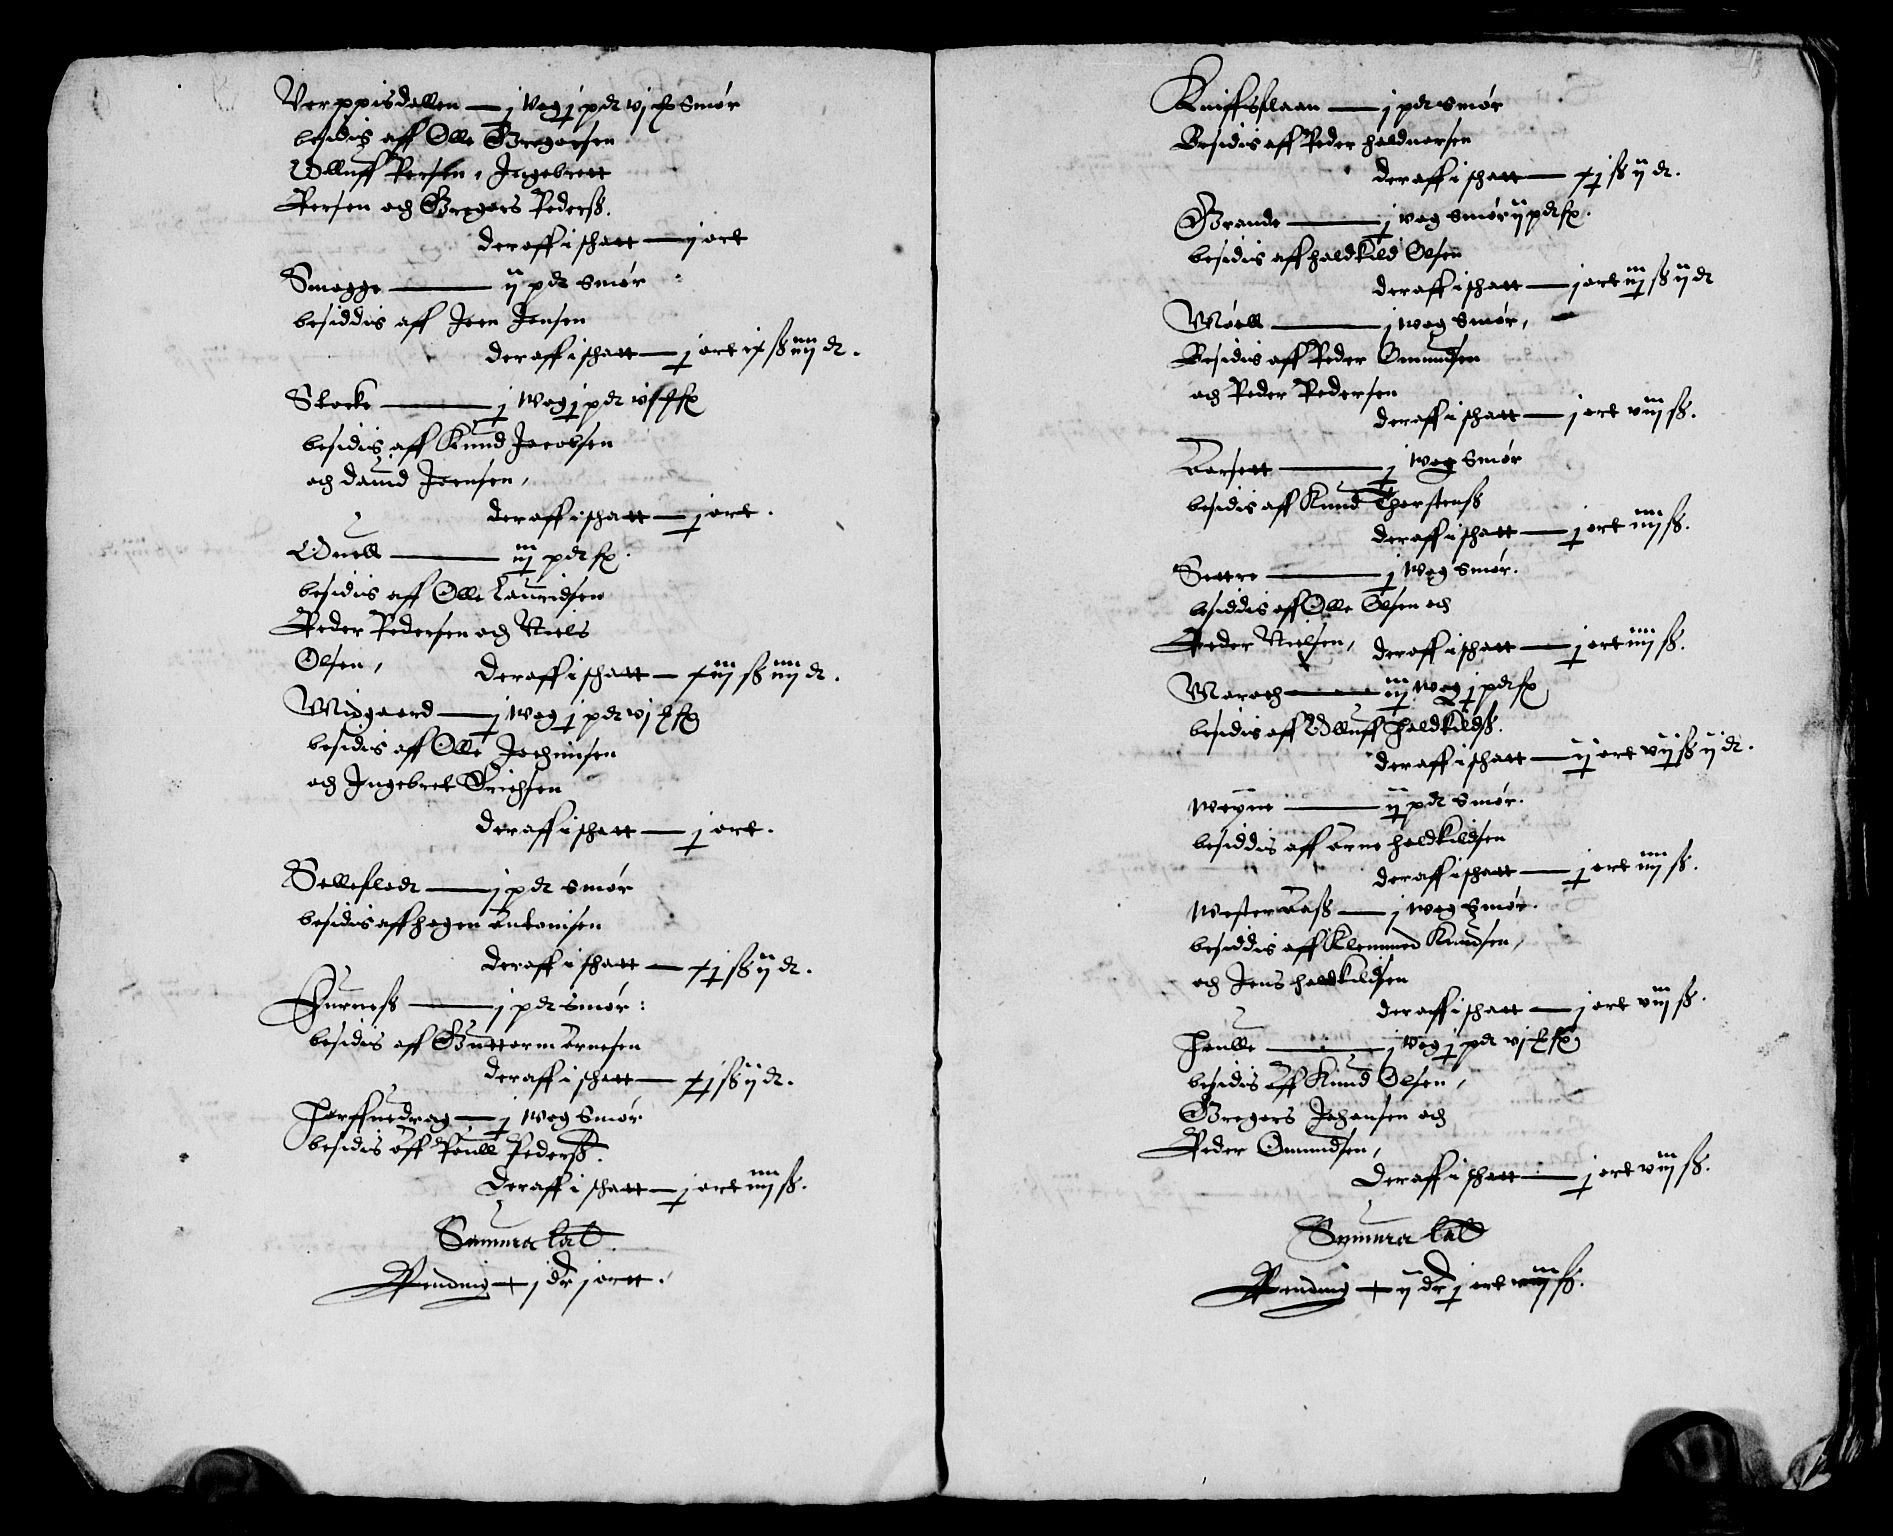 Verppisdallen — j Wog j pdt vj ℔ Smør
besidis aff Olle Gregorsen
Wlluff Persen, Ingebrett
Persen och Gregers Pederß.
deraff i schatt — j ort
Smogge — ij pdt smør
besiddis aff Joen Jensen
deraff i schatt — j ort ix ß iiij dt.
Stocke — j Wog j pdt vj ℔ fx
besidis aff Knud Jacobsen
och dauid Joensen,
deraff i schatt — j ort.
Quell — iij pdt fx.
besidis aff Olle Lauridsen
Peder Pedersen och Niels
Olsen,
deraff i schatt — xiij ß iiij dt.
Midgaard — j Wog j pdt vj ℔ fx
besidis aff Olle Jochimsen
och Ingebret Erichsen
deraff i schatt — j ort.
Selleflodt — j pdt smør
besidis aff hagen Antonisen
deraff i schatt — xj ß ij dt.
Furneß — j pdt smør:
besidis aff Guttorm Arnesen
deraff i schatt — xj ß ij dt.
— j Wog Smør
besidis aff Pouell Pederß.
deraff i schatt — j ort iiij ß.
Summa lat.
Pending — j dr j ortt.
Kniffisflaan — j pdt smør
Besidis aff Peder haluorsen
deraff i schatt — xj ß ij dt.
Grande — j wog smør ij pdt fx.
besidis aff haldkild Olsen
deraff i schatt — j ort iij ß ij dt
Møell — j wog smør,
Besidis aff Peder Omundsen
och Peder Pedersen
deraff i schatt — j ort viij ß.
Aarsett — j wog Smør
besidis aff Knud Thorstenß
deraff i schatt — j ort iiij ß.
Settre — j Wog smør.
besiddis aff Olle Olsen och
Peder Nielsen, deraff i schatt — j ort iiij ß.
Maroch — iij wog j pdt fx
besidis aff Wlluff Haldkildß.
deraff i schatt — ij ort vij ß ij dt.
— ij pdt smør.
besiddis aff Arne haldkildsen
deraff i schatt — j ort iiij ß.
Wester Aaß — j wog Smør.
besiddis aff Klemmed Knudsen,
och Jens haldkildsen
deraff i schatt — j ort viij ß.
— j Wog j pdt vj ℔ fx
besidis aff Knud Olsen,
Gregers Johansen och
Peder Omundsen,
deraff i schatt — j ort viij ß.
Summa lat
Pending — ij dr j ort viij ß.